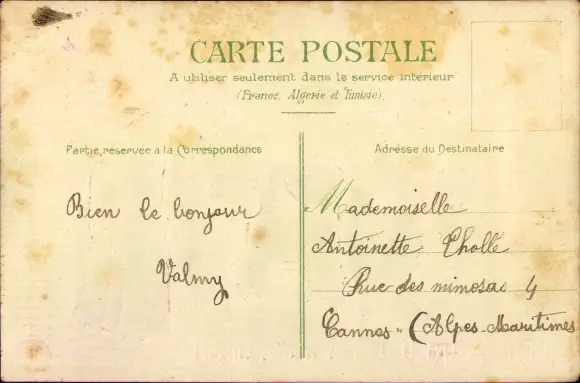 CARTE POSTALE
A utiliser seulement dans le service intérieur
(France, Algerie et Tunisie)
Partie réservée à la Correspondance
Adresse du Destinataire
Bien le bonjour
Valmy
Mademoiselle
Antoinette Cholle
Rue des mimosas 4
Cannes - (Alpes-Maritimes